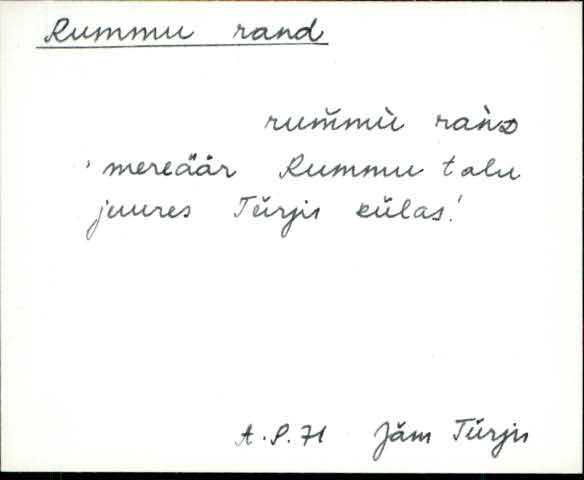 Rummu rand
rum̆mù ràǹD
' mereäär Rummu talu
juures Türju külas.'
A.P. 71 Jäm Türju